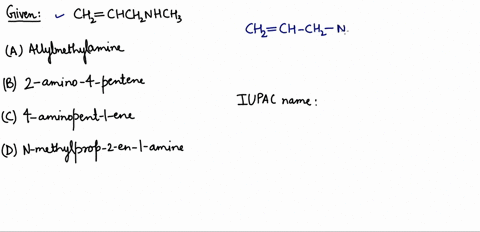 Given: ✓ CH₂=CHCH₂NHCH₃
(A) Allylmethylamine
(B) 2-amino-4-pentene
(C) 4-aminopent-1-ene
(D) N-methylprop-2-en-1-amine
CH₂=CH-CH₂-N
IUPAC name: